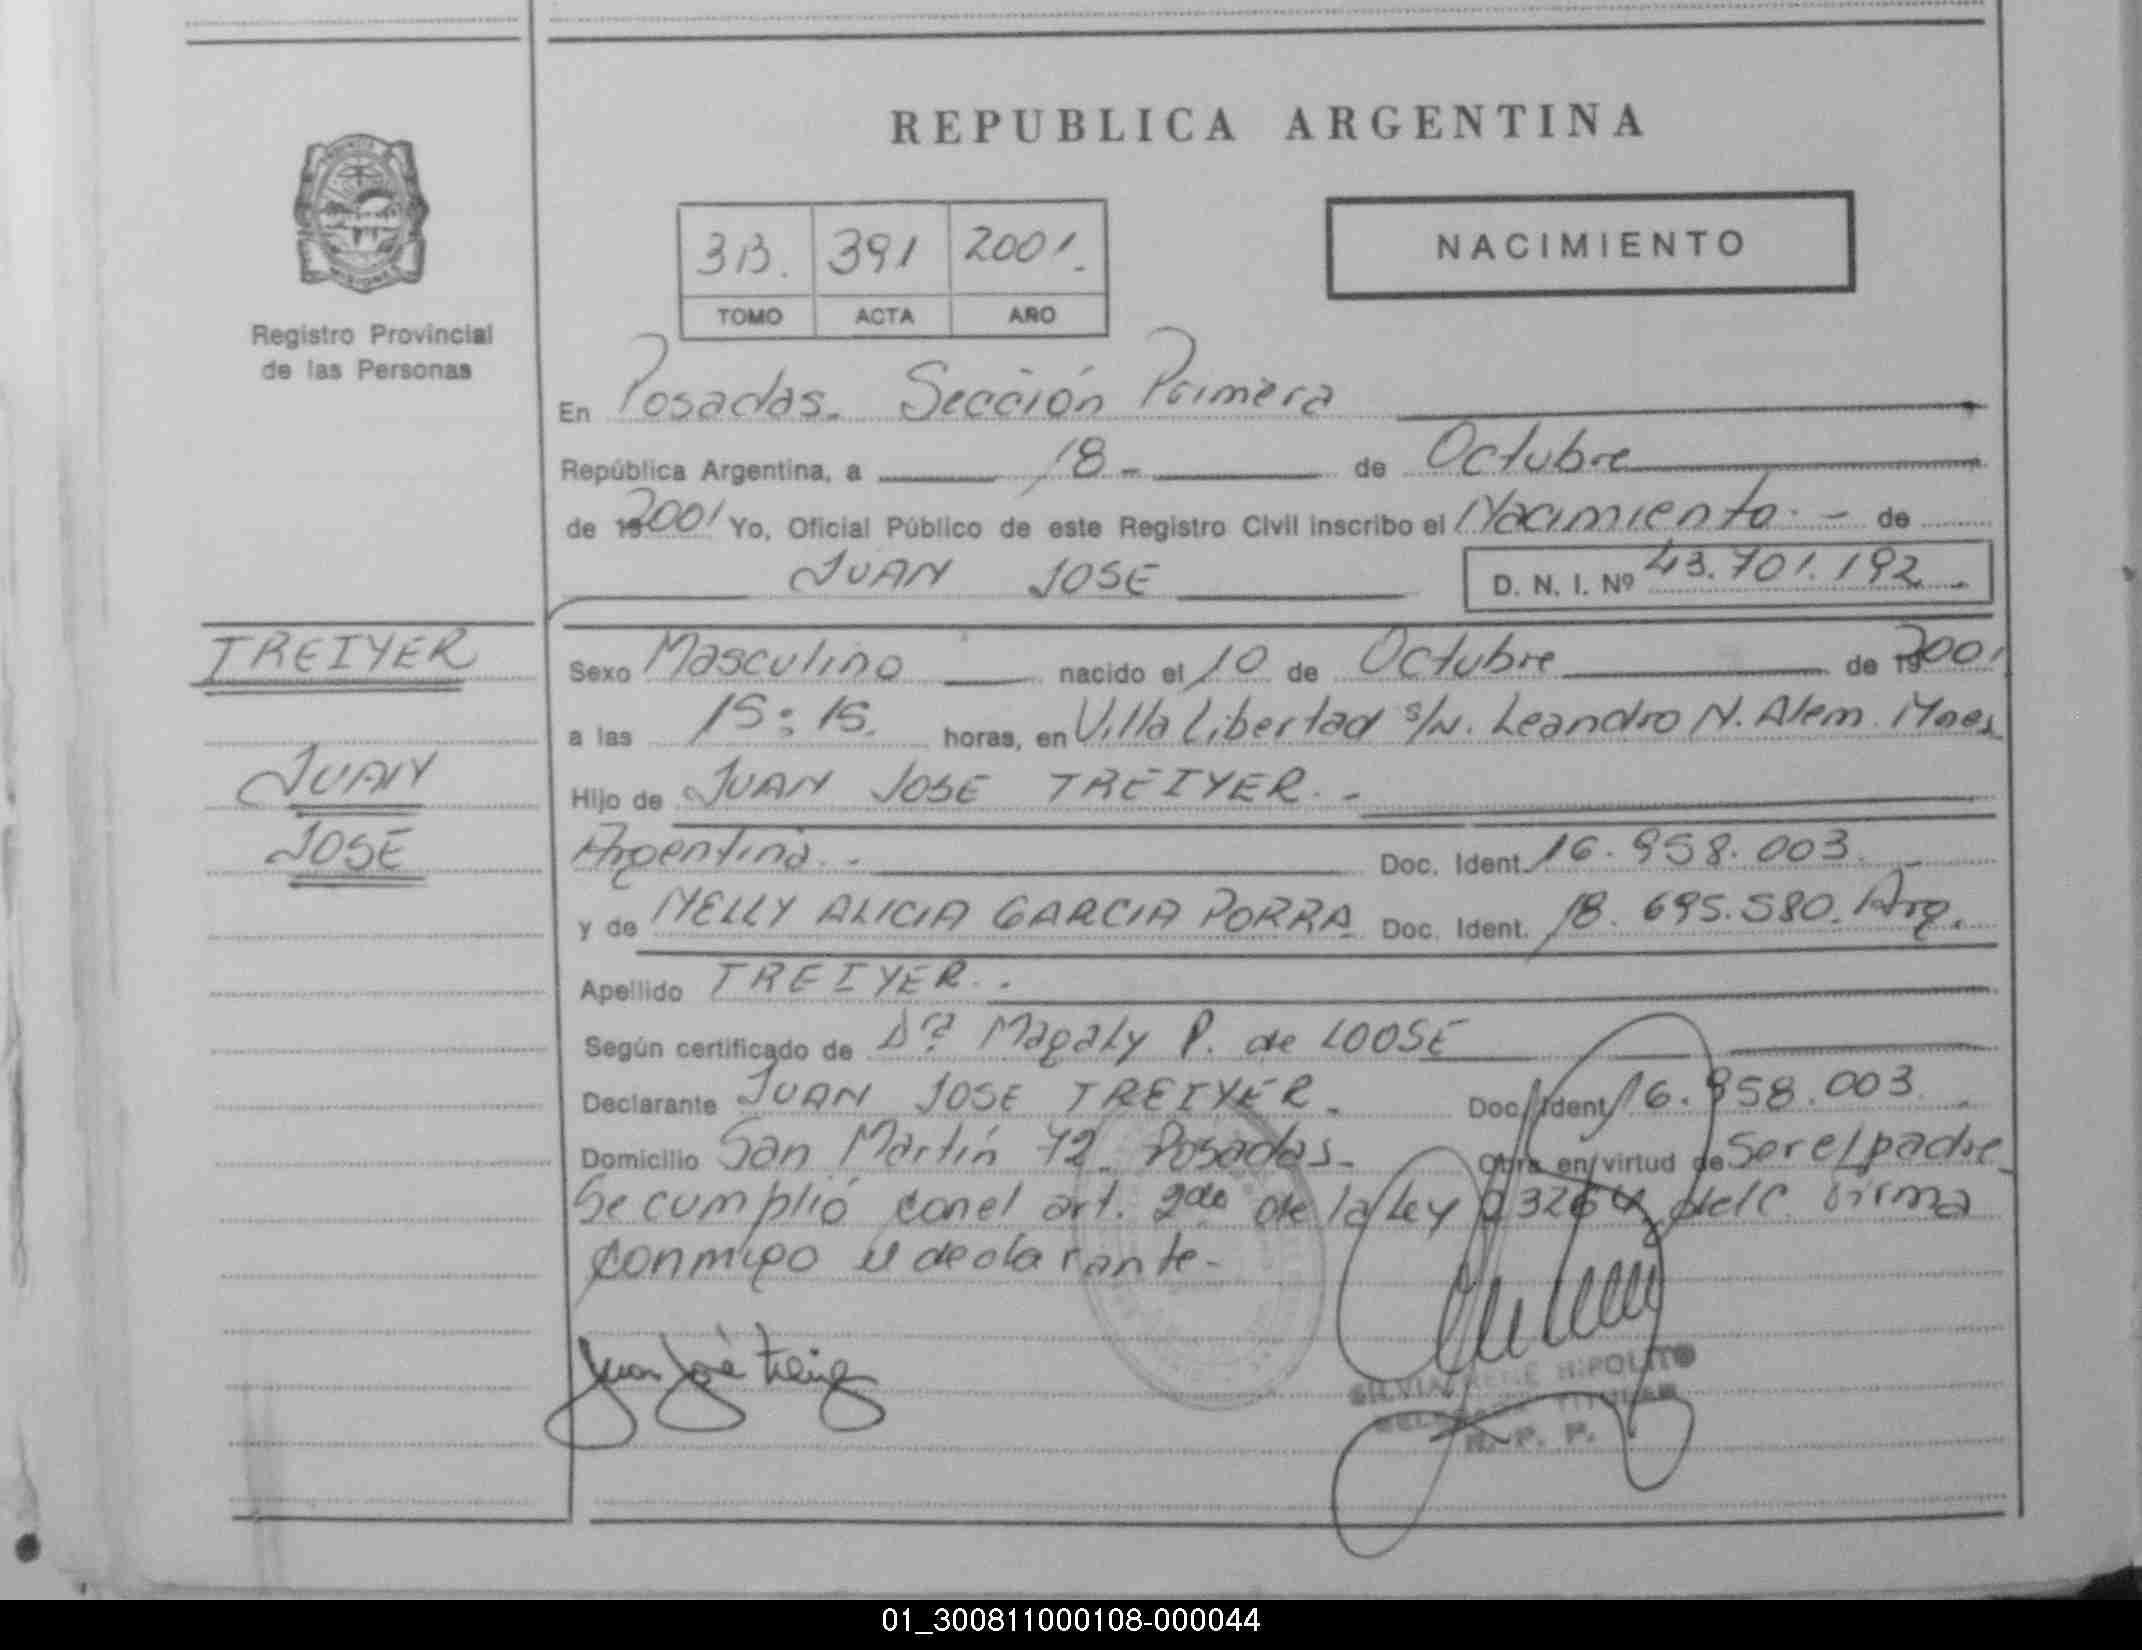 REPUBLICA ARGENTINA
3B. 391 2001.
TOMO ACTA AÑO
NACIMIENTO
Registro Provincial
de las Personas
En Posadas. Sección Primera
República Argentina, a 18 - de Octubre
de 2001 Yo, Oficial Público de este Registro Civil inscribo el Nacimiento. - de
JUAN JOSE D. N. I. Nº 43.701.192.
TREIYER
JUAN
JOSE
Sexo Masculino nacido el 10 de Octubre de 2001
a las 15:15. horas, en Villa Libertad s/N. Leandro N. Alem. Mnes
Hijo de JUAN JOSE TREIYER. -
Argentina. - Doc. Ident. 16.958.003. -
y de NELLY ALICIA GARCIA PORRA Doc. Ident. 18.695.580. Arg.
Apellido TREIYER. .
Según certificado de Dra Magaly P. de LOOSE
Declarante JUAN JOSE TREIYER. Doc. Ident. 16.958.003.
Domicilio San Martín 72. Posadas. Obra en virtud de Ser el padre
Se cumplió con el art. 2do de la Ley 23264 del C. Firma
conmigo el declarante. -
Juan José
SILVIA IRENE HIPOLITO
DELEGADA TITULAR
R. P. P.
01_300811000108-000044